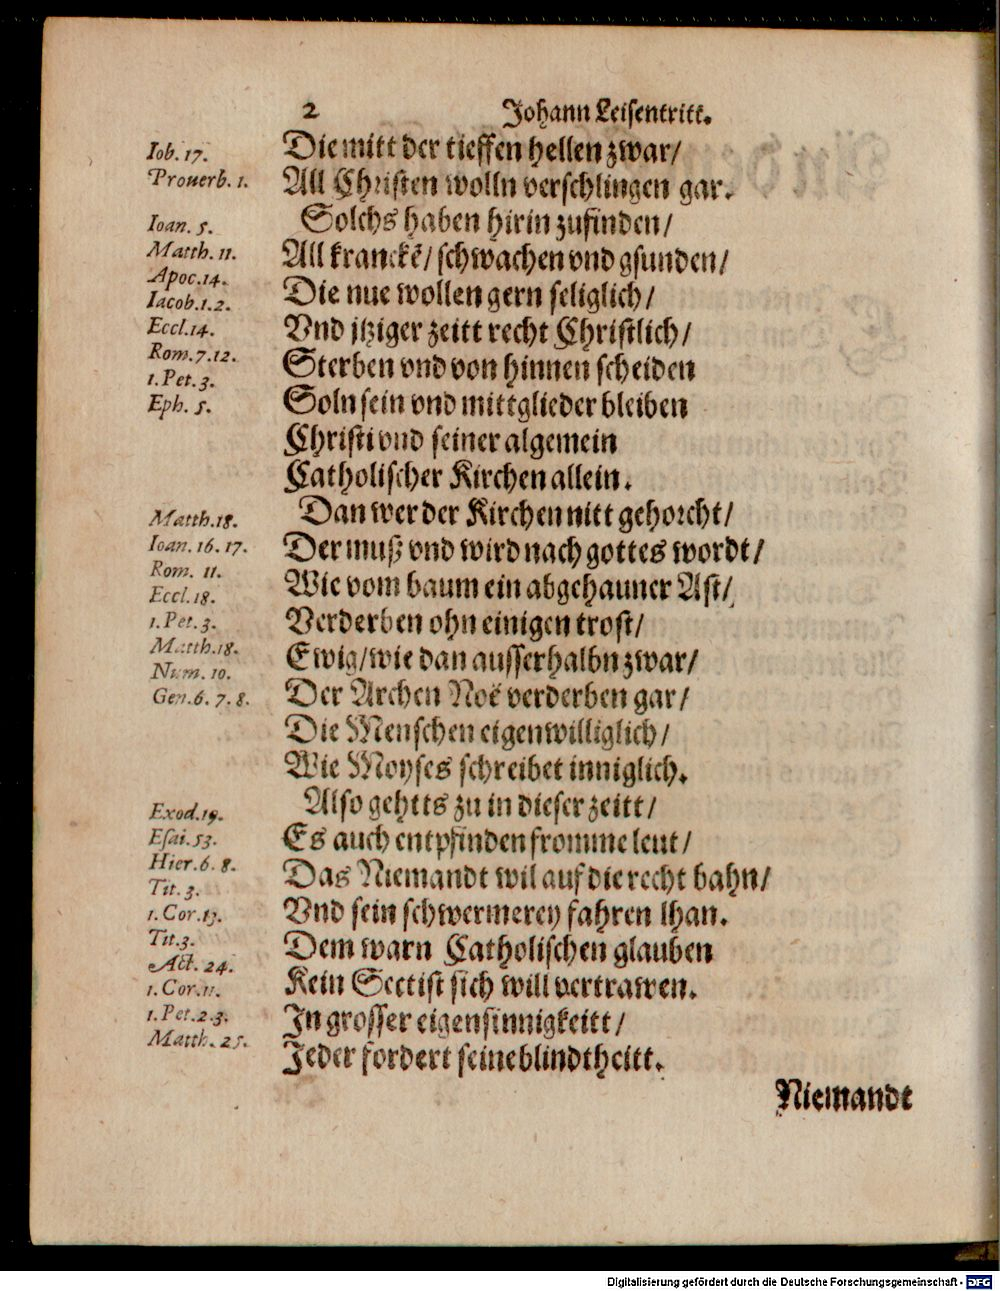 2 Johann Leisentritt.
Iob. 17.
Prouerb. 1.
Ioan. 5.
Matth. 11.
Apoc. 14.
Iacob. 1. 2.
Eccl. 14.
Rom. 7. 12.
1. Pet. 3.
Eph. 5.
Matth. 18.
Ioan. 16. 17.
Rom. 11.
Eccl. 18.
1. Pet. 3.
Matth. 18.
Num. 10.
Gen. 6. 7. 8.
Exod. 19.
Esai. 53.
Hier. 6. 8.
Tit. 3.
1. Cor. 13.
Tit. 3.
Act. 24.
1. Cor. 11.
1. Pet. 2. 3.
Matth. 25.
Die mitt der tieffen hellen zwar/
All Christen wolln verschlingen gar.
Solchs haben hirin zufinden/
All kranckē/ schwachen vnd gsunden/
Die nue wollen gern seliglich/
Vnd jtziger zeitt recht Christlich/
Sterben vnd von hinnen scheiden
Soln sein vnd mittglieder bleiben
Christi vnd seiner algemein
Catholischer Kirchen allein.
Dan wer der Kirchen nitt gehorcht/
Der muß vnd wird nach gottes wordt/
Wie vom baum ein abgehauner Ast/
Verderben ohn einigen trost/
Ewig/ wie dan ausserhalbn zwar/
Der Archen Noë verderben gar/
Die Menschen eigenwilliglich/
Wie Moyses schreibet inniglich.
Also gehtts zu in dieser zeitt/
Es auch entpfinden fromme leut/
Das Niemandt wil auf die recht bahn/
Vnd sein schwermerey fahren lhan.
Dem warn Catholischen glauben
Kein Sectist sich will vertrawen.
In grosser eigensinnigkeitt/
Jeder fordert seine blindtheitt.
Niemandt
Digitalisierung gefördert durch die Deutsche Forschungsgemeinschaft - DFG